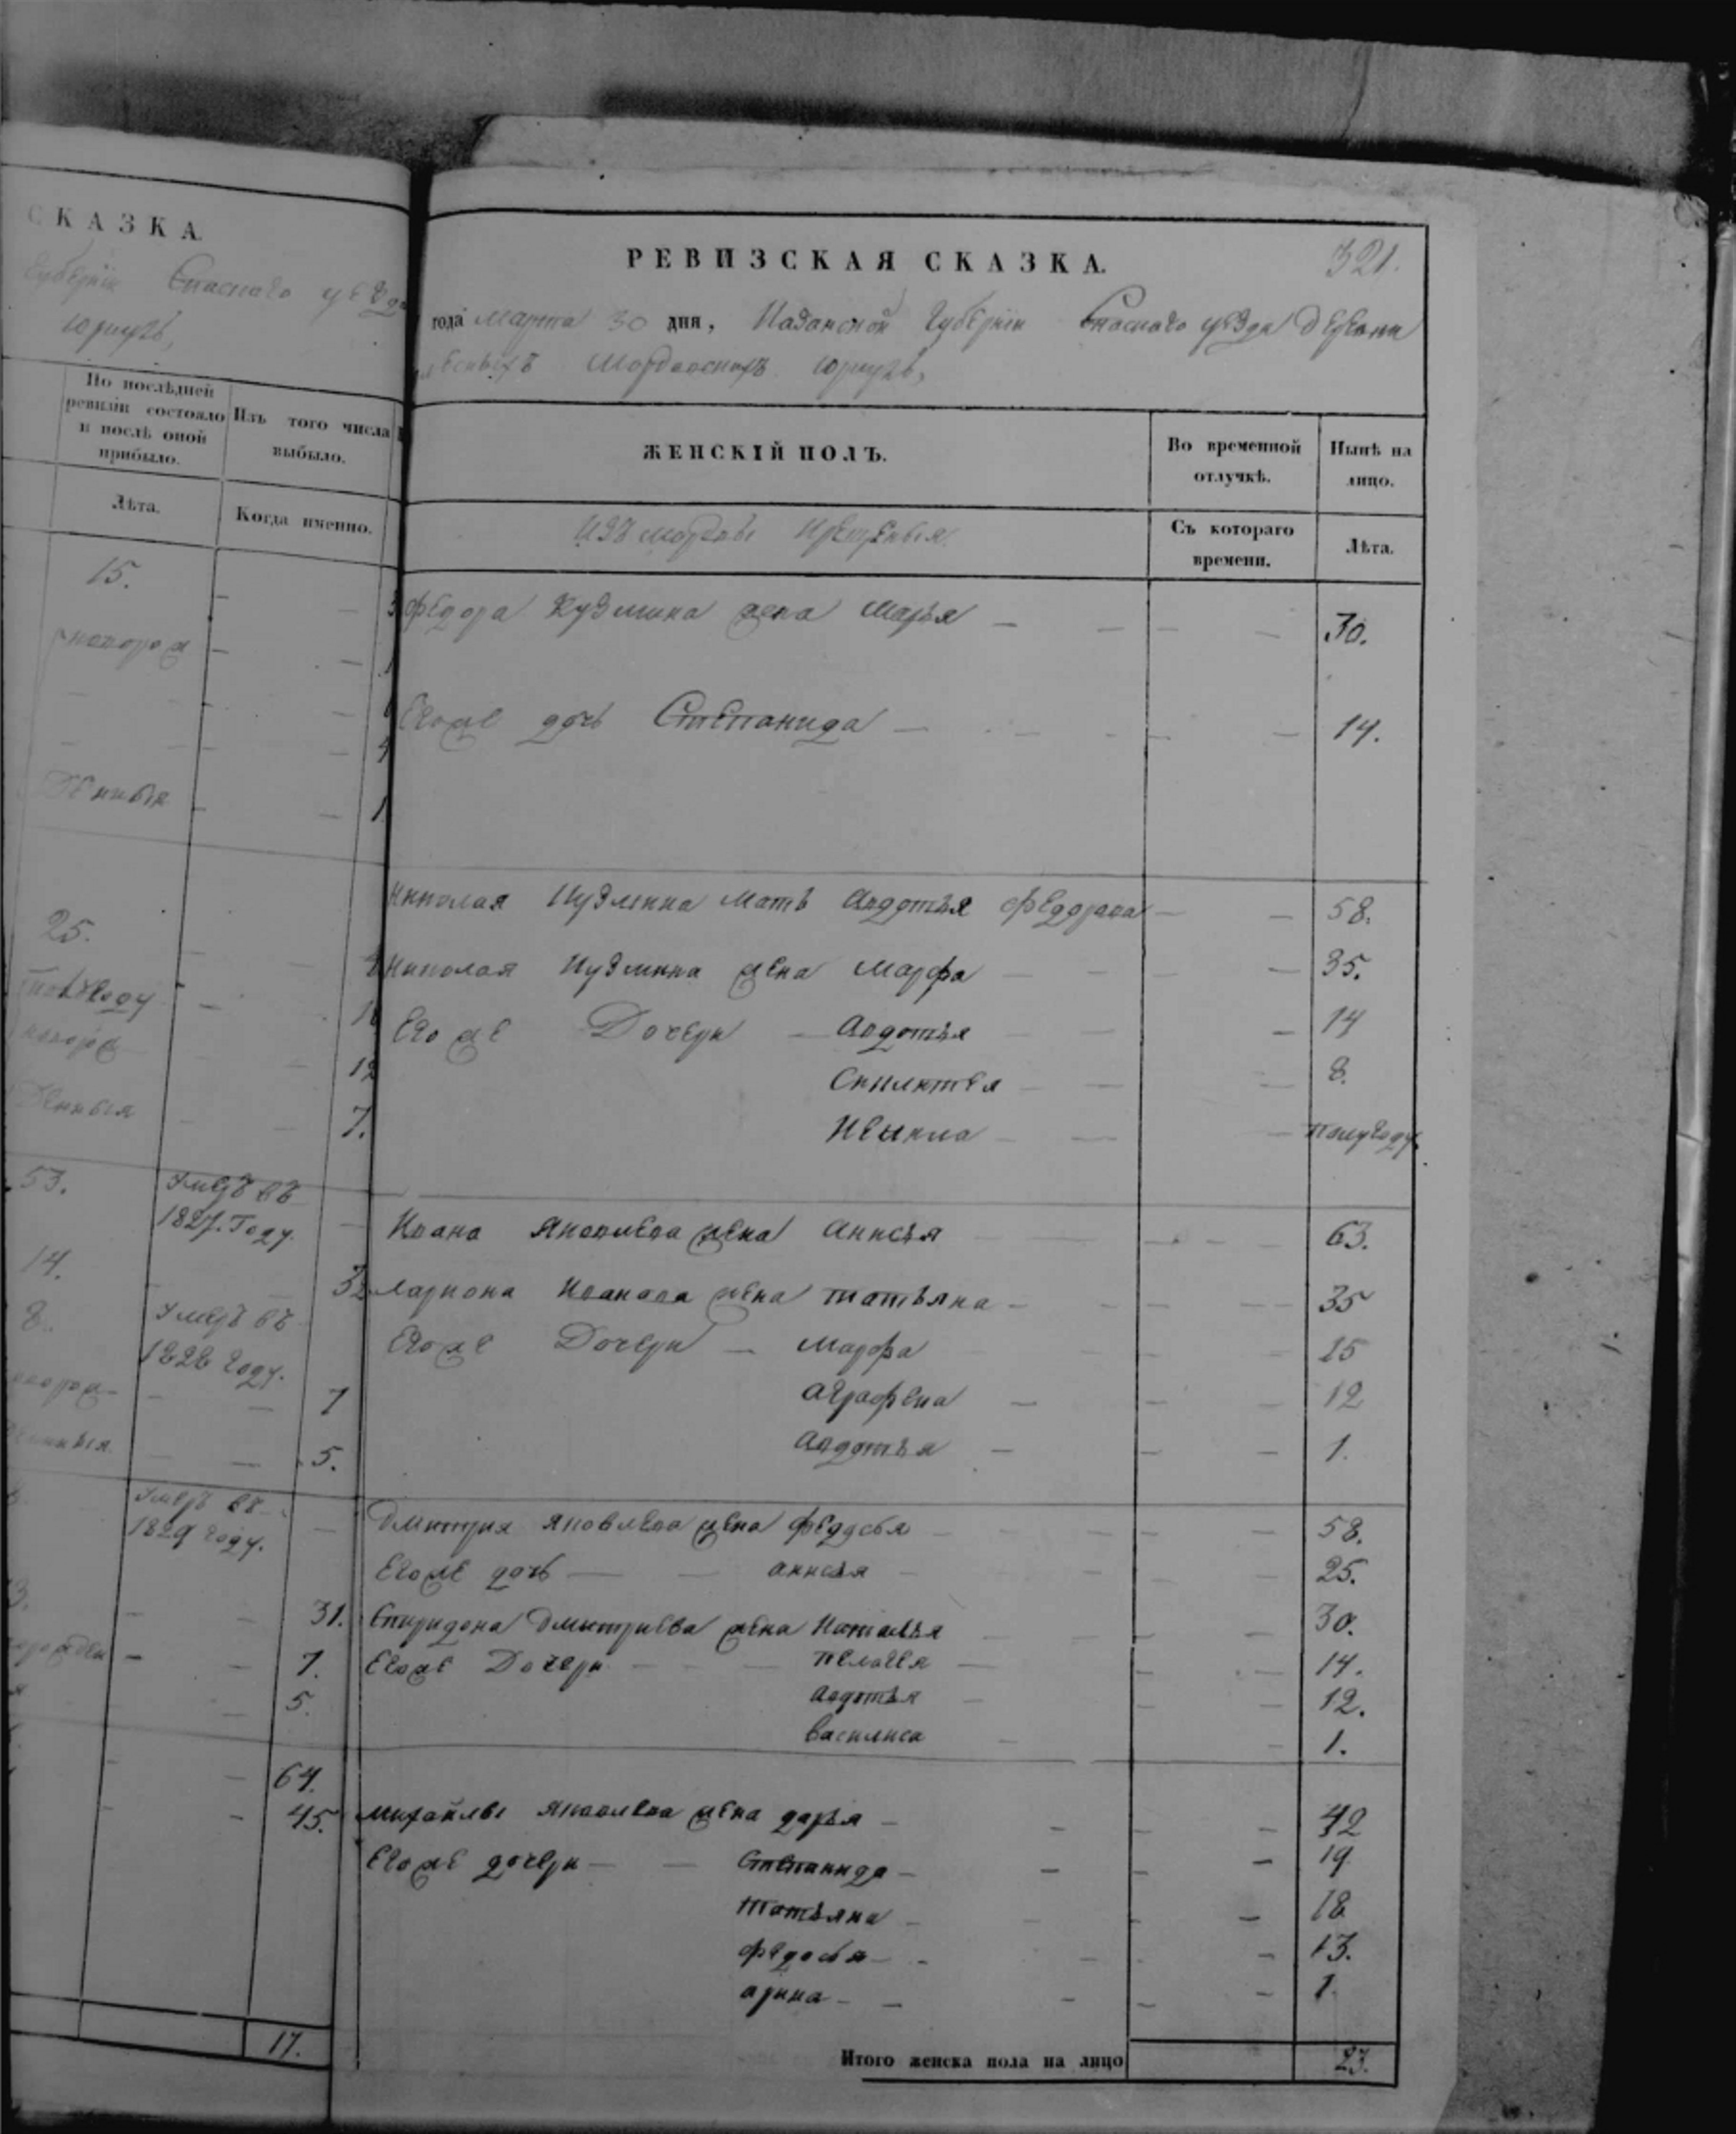 СКАЗКА.
Губерніи Спаскаго уѣзда
юркуль,
По послѣдней ревизіи состояло и послѣ оной прибыло.
Изъ того числа выбыло.
Лѣта.
Когда именно.
15.
25.
53. Умеръ въ
1827. Году.
14.
8. Умеръ въ
1828 году.
7
5.
Умеръ въ
1829 году.
31.
7.
5.
64.
45.
17.
РЕВИЗСКАЯ СКАЗКА.
321.
года марта 30 дня, Казанской Губерніи Спаскаго уѣзда деревни
Мордовскихъ юркуль,
ЖЕНСКІЙ ПОЛЪ.
Во временной отлучкѣ.
Нынѣ на лицо.
Изъ мордвы крещеныя.
Съ котораго времени.
Лѣта.
Федора Кузмина жена Марья 30.
Егоже дочь Степанида 14.
Николая Кузмина мать Авдотья Федорова 58.
Николая Кузмина жена Марфа 35.
Егоже Дочери Авдотья 14
8.
полугоду.
Ивана Яковлева жена Анисья 63.
Лариона Иванова жена Татьяна 35
Егоже Дочери Марфа 15
Аграфена 12
Авдотья 1.
Дмитрия Яковлева жена Федосья 58.
Егоже дочь Анисья 25.
Спиридона Дмитриева жена Наталья 30.
Егоже Дочери Пелагея 14.
Авдотья 12.
Василиса 1.
Михайлы Яковлева жена Дарья 42
Егоже дочери Степанида 19
Татьяна 18
Федосья 13.
Арина 1.
Итого женска пола на лицо 23.